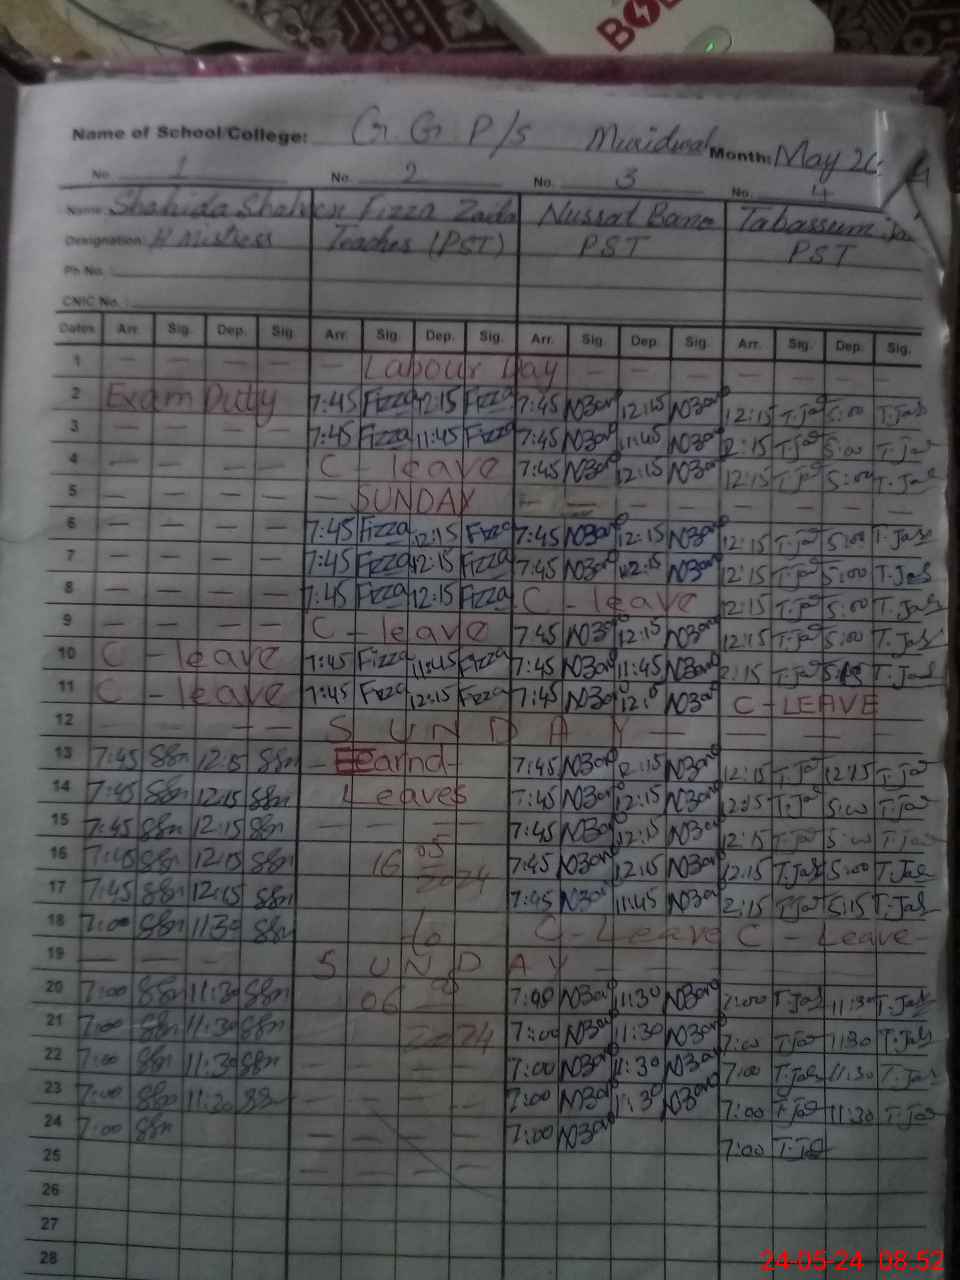 Name of School/College: G. G P/s Month: May 24
No. 1 No. 2 No. 3 No. 4
Name: Shahida Shaheen Fizza Zaidi Nussat Bano Tabassum
Designation: H Mistress Teacher (PST) PST PST
Ph No.:
CNIC No.:
Dates Arr. Sig. Dep. Sig. Arr. Sig. Dep. Sig. Arr. Sig. Dep. Sig. Arr. Sig. Dep. Sig.
1 — — — — — Labour Day — — — — —
2 Exam Duty 7:45 Fizza 12:15 Fizza 7:45 NBano 12:15 NBano 12:15 T.Jas 5:00 T.Jas
3 — — — — 7:45 Fizza 11:45 Fizza 7:45 NBano 11:45 NBano 2:15 T.Jas 5:00 T.Jas
4 — — — — C - leave 7:45 NBano 12:15 NBano 12:15 T.Jas 5:00 T.Jas
5 — — — — — SUNDAY — — — — — — — —
6 — — — — 7:45 Fizza 12:15 Fizza 7:45 NBano 12:15 NBano 12:15 T.Jas 5:00 T.Jas
7 — — — — 7:45 Fizza 12:15 Fizza 7:45 NBano 12:15 NBano 12:15 T.Jas 5:00 T.Jas
8 — — — — 7:45 Fizza 12:15 Fizza C - leave 12:15 T.Jas 5:00 T.Jas
9 — — — — C - leave 7:45 NBano 12:15 NBano 12:15 T.Jas 5:00 T.Jas
10 C - leave 7:45 Fizza 11:45 Fizza 7:45 NBano 11:45 NBano 2:15 T.Jas T.Jas
11 C - leave 7:45 Fizza 12:15 Fizza 7:45 NBano NBano C - LEAVE
12 — — — — S U N D A Y — — — — —
13 7:45 SSn 12:15 SSn — Earnd — 7:45 NBano 12:15 NBano 12:15 T.Jas 12:15 T.Jas
14 7:45 SSn 12:15 SSn Leaves 7:45 NBano 12:15 NBano 12:15 T.Jas 5:00 T.Jas
15 7:45 SSn 12:15 SSn — — — 7:45 NBano 12:15 NBano 12:15 T.Jas 5:00 T.Jas
16 7:45 SSn 12:15 SSn 16 05 2024 7:45 NBano 12:15 NBano 12:15 T.Jas 5:00 T.Jas
17 7:45 SSn 12:15 SSn 7:45 NBano 11:45 NBano 2:15 T.Jas 5:15 T.Jas
18 7:00 SSn 11:30 SSn To C - Leave C - Leave
19 — — — S U N D A Y — — — — — —
20 7:00 SSn 11:30 SSn 06 7:00 NBano 11:30 NBano 7:00 T.Jas 11:30 T.Jas
21 7:00 SSn 11:30 SSn 2024 7:00 NBano 11:30 NBano 7:00 T.Jas 11:30 T.Jas
22 7:00 SSn 11:30 SSn — — — — 7:00 NBano 11:30 NBano 7:00 T.Jas 11:30 T.Jas
23 7:00 SSn 11:30 SSn — — — — 7:00 NBano 11:30 NBano 7:00 T.Jas 11:30 T.Jas
24 7:00 SSn — — — — 7:00 NBano 7:00 T.Jas
25 — — — —
26
27
28
24-05-24 08:52